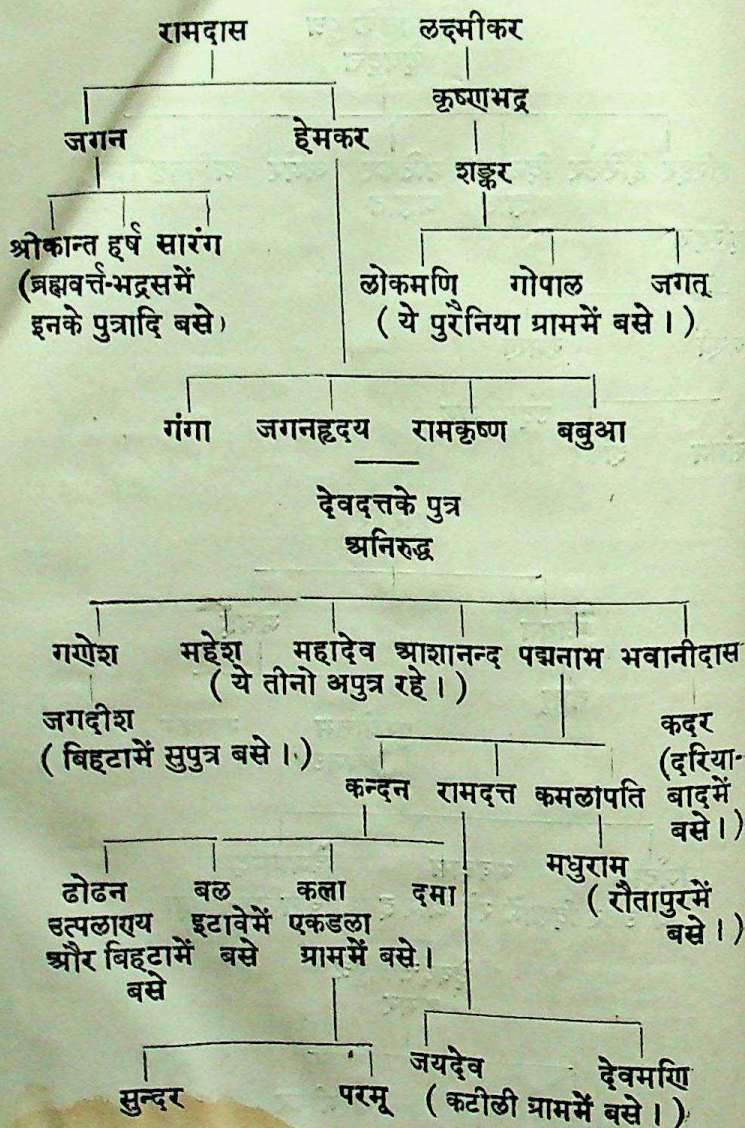 रामदास लक्ष्मीकर
कृष्णभद्र
जगन हेमकर
शङ्कर
श्रीकान्त हर्ष सारंग
(ब्रह्मवर्त्त-भद्रसमें
इनके पुत्रादि बसे)
लोकमणि गोपाल जगत्
( ये पुरैनिया ग्राममें बसे । )
गंगा जगनहृदय रामकृष्ण बबुआ
देवदत्तके पुत्र
अनिरुद्ध
गणेश महेश महादेव आशानन्द पद्मनाभ भवानीदास
( ये तीनो अपुत्र रहे । )
जगदीश
( बिहटामें सुपुत्र बसे । )
कदर
(दरिया-
बादमें
बसे । )
कन्दन रामदत्त कमलापति
मधुराम
( रौतापुरमें
बसे । )
ढोढन बल कला दमा
उत्पलारण्य इटावेमें एकडला
और बिहटामें बसे ग्राममें बसे ।
बसे
जयदेव देवमणि
सुन्दर परमू ( कटीली ग्राममें बसे । )